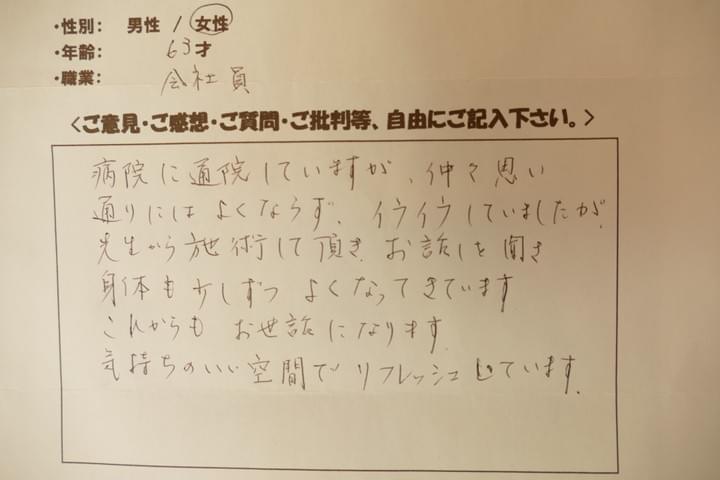 ・性別: 男性 / 女性
・年齢: 63才
・職業: 会社員
<ご意見・ご感想・ご質問・ご批判等、自由にご記入下さい。>
病院に通院していますが、仲々思い
通りにはよくならず、イライラしていましたが、
先生から施術して頂き、お話しを聞き
身体も少しずつよくなってきています
これからもお世話になります。
気持ちのいい空間でリフレッシュしています。